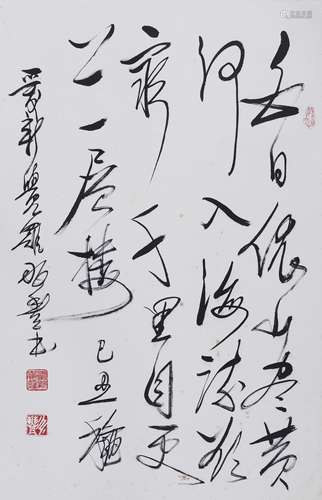 白日依山尽黄
河入海流欲
窮千里目更
上一层楼 己丑
爱新觉罗 书